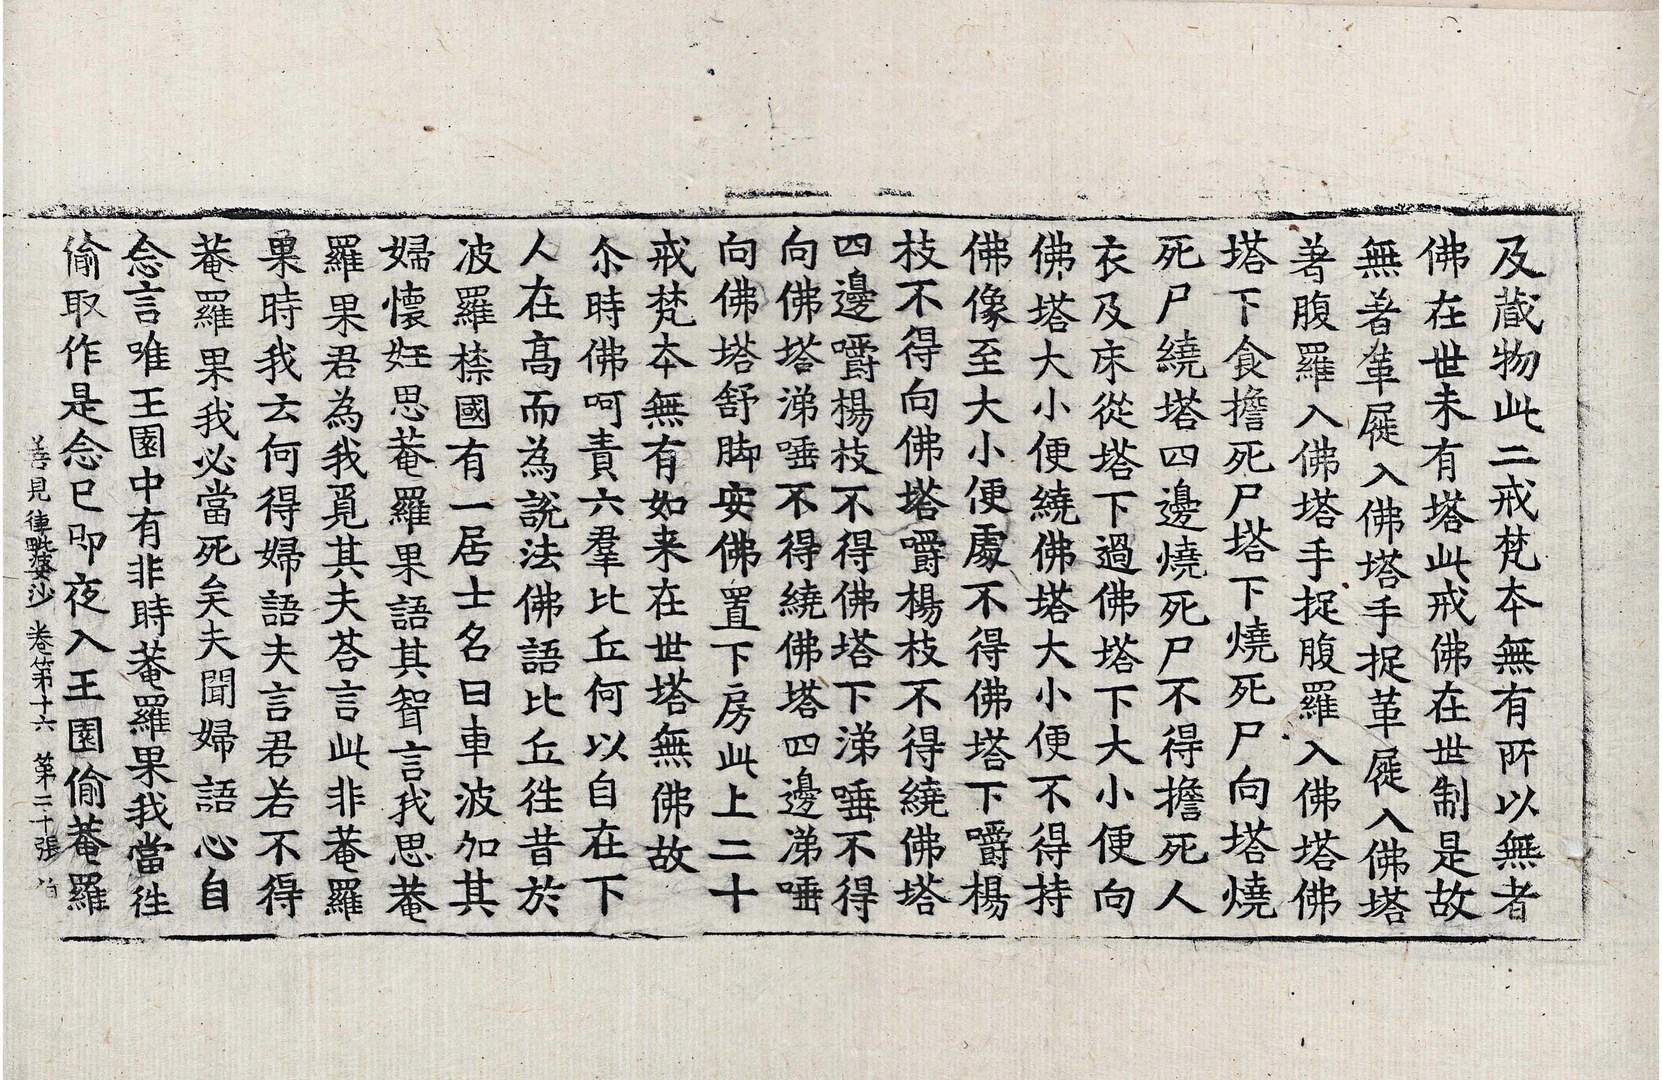 及蔵物此二戒梵本無有所以無者
佛在世未有塔此戒佛在世制是故
無著革屣入佛塔手捉革屣入佛塔
著腹羅入佛塔手捉腹羅入佛塔佛
塔下食擔死尸塔下燒死尸向塔燒
死尸繞塔四邊燒死尸不得擔死人
衣及床從塔下過佛塔下大小便向
佛塔大小便繞佛塔大小便不得持
佛像至大小便處不得佛塔下嚼楊
枝不得向佛塔嚼楊枝不得繞佛塔
四邊嚼楊枝不得佛塔下涕唾不得
向佛塔涕唾不得繞佛塔四邊涕唾
向佛塔舒脚安佛置下房此上二十
戒梵本無有如来在世塔無佛故
尒時佛呵責六羣比丘何以自在下
人在高而為說法佛語比丘徃昔於
波羅㮈國有一居士名曰車波加其
婦懷妊思菴羅果語其聟言我思菴
羅果君為我覓其夫荅言此非菴羅
果時我云何得婦語夫言君若不得
菴羅果我必當死矣夫聞婦語心自
念言唯王園中有非時菴羅果我當徃
偷取作是念已即夜入王園偷菴羅
善見律毗婆沙 卷第十六 第二十張 伯